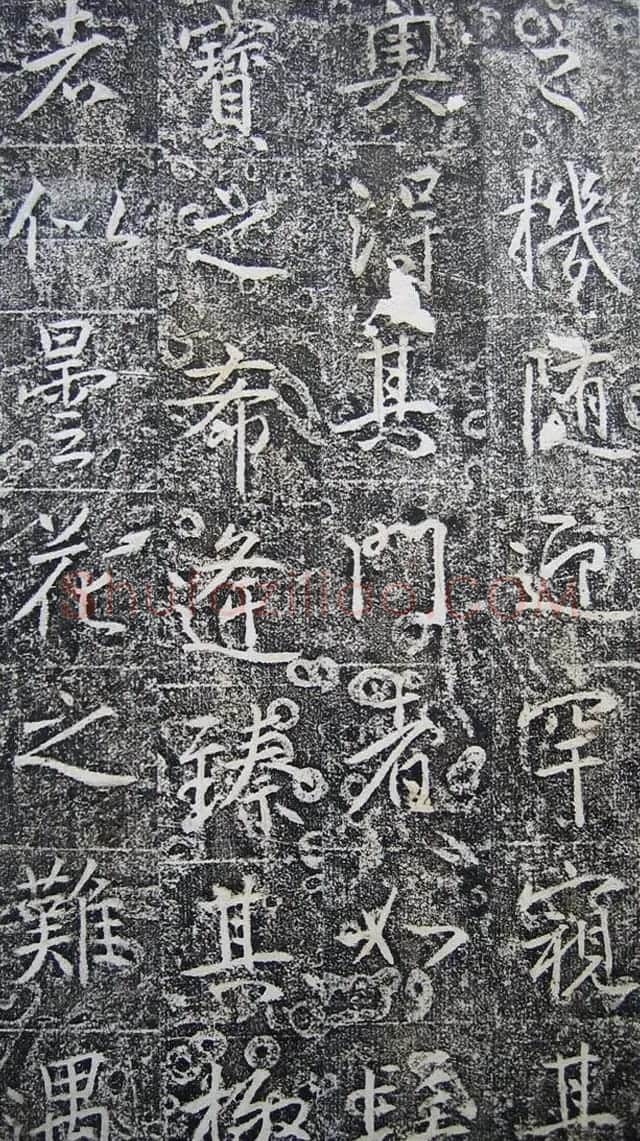 之機随迎罕窺其
奥得其門者如
寶之希逢臻其極
者似曇花之難遇
Shufaziliao.COM